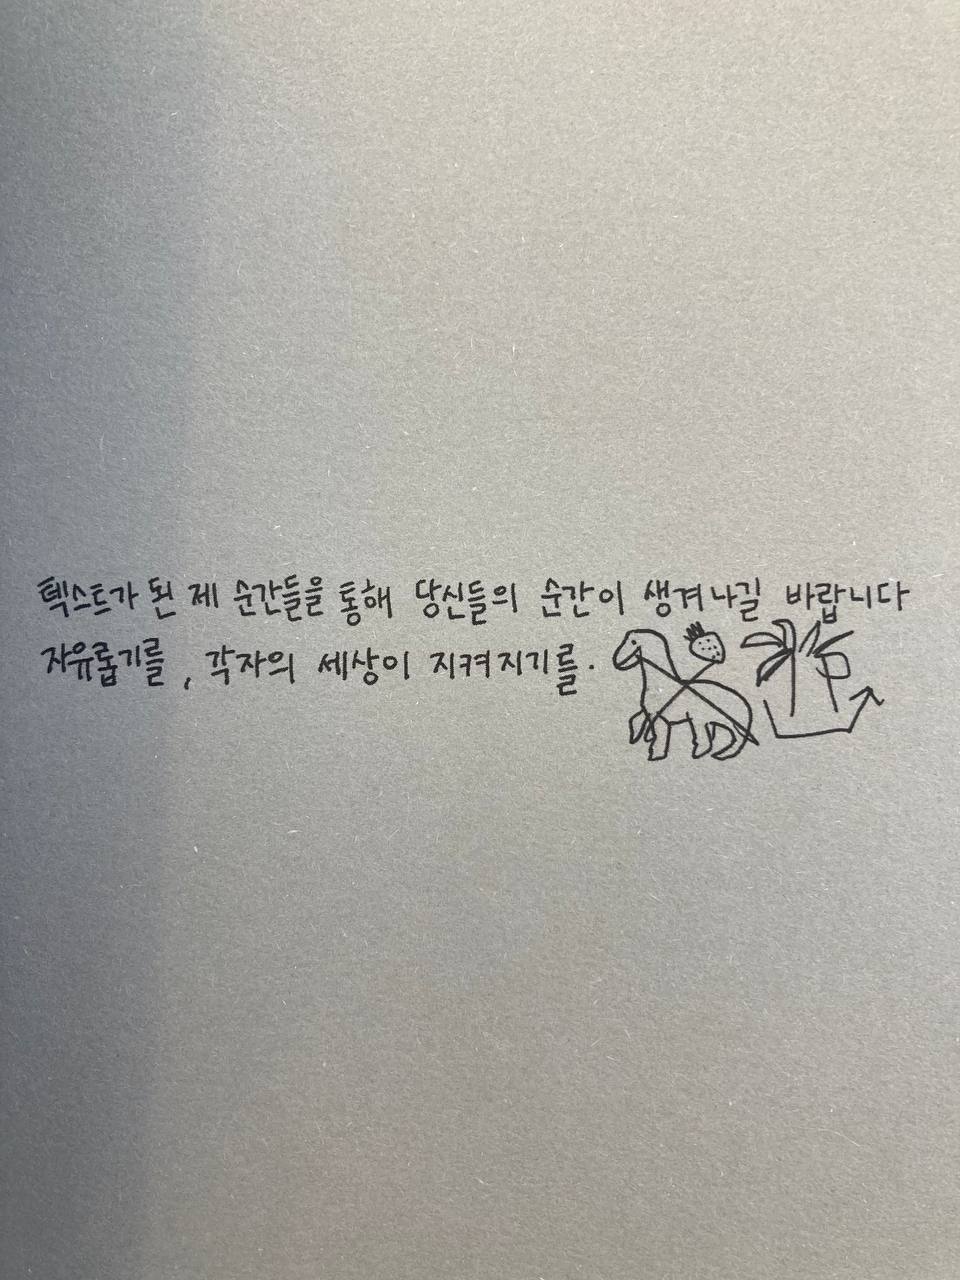 텍스트가 된 제 순간들을 통해 당신들의 순간이 생겨나길 바랍니다
자유롭기를, 각자의 세상이 지켜지기를.